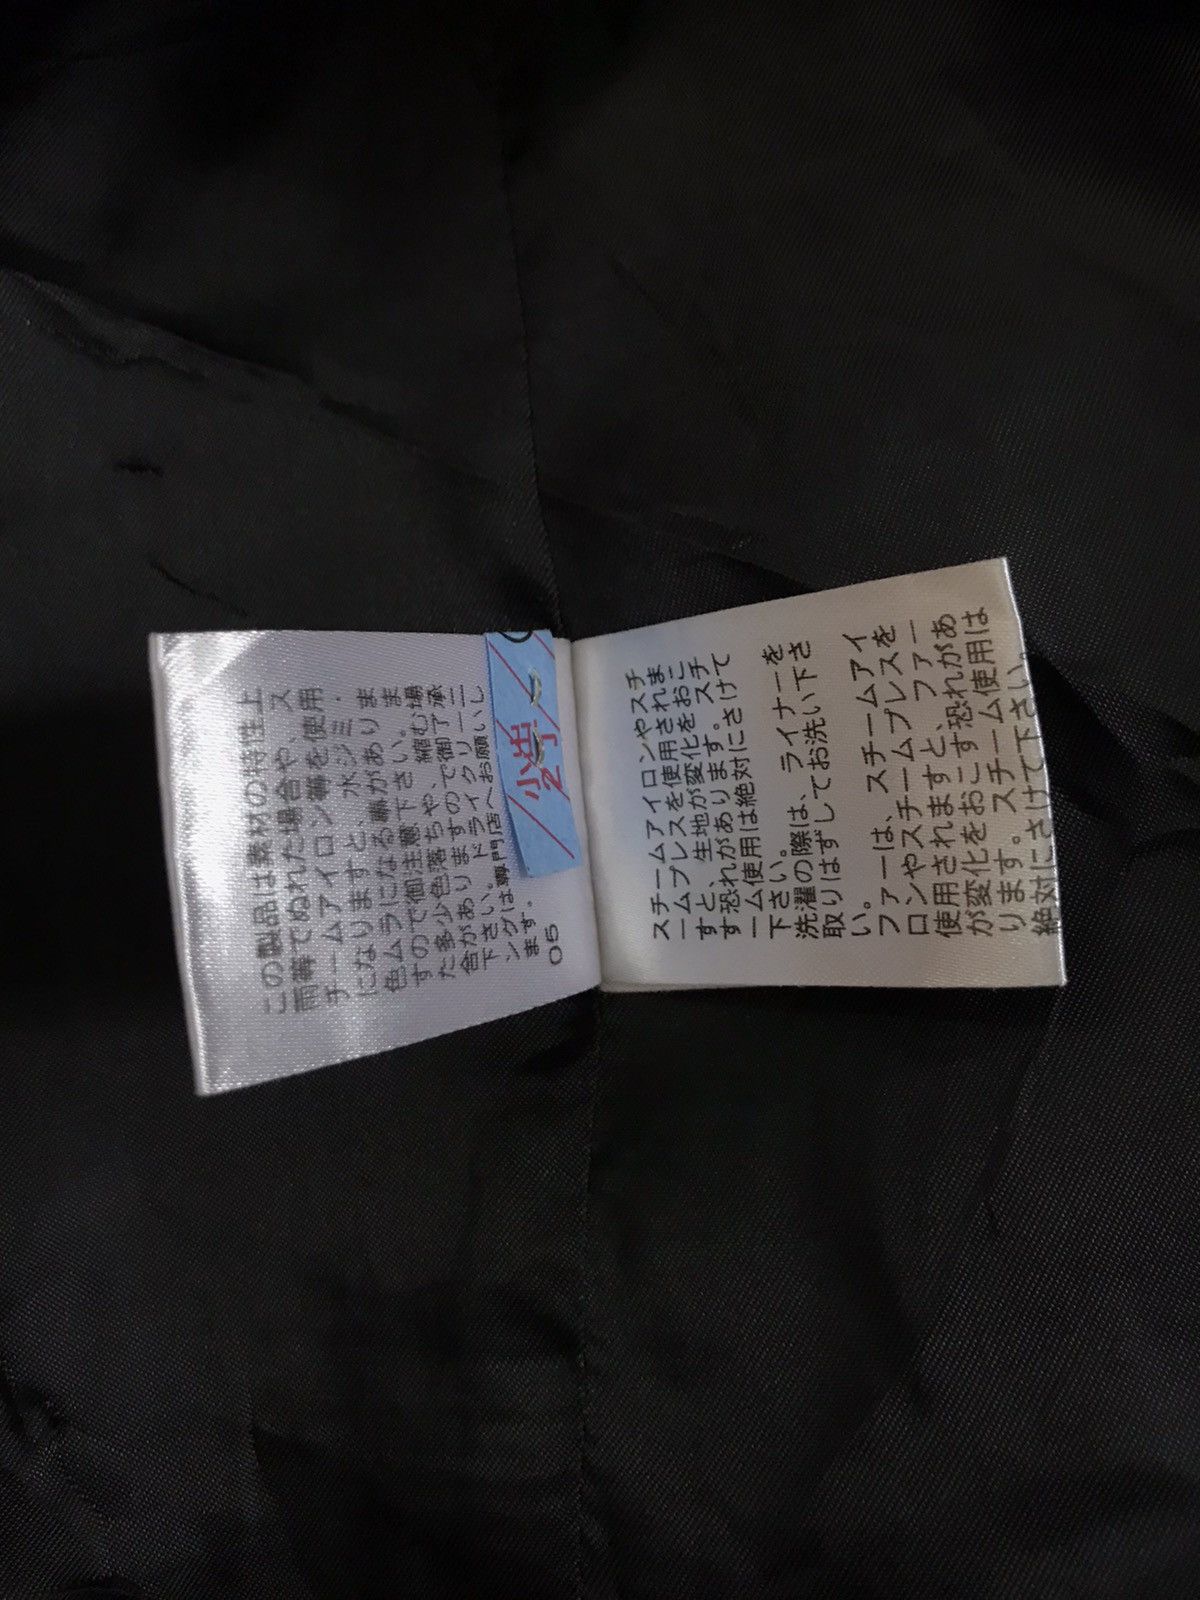 この製品は素材の特性上
雨等でぬれた場合や、ス
チームアイロン等を使用
になりますと、水ジミ・
色ムラになる事がありま
すので御注意下さい。ま
た多少色落ちや、縮む場
合がありますので御了承
下さい。ドライクリーニ
ングは専門店へお願いし
ます。
05
小出
2丁
スチームアイロンやスチ
ームプレスを使用されま
すと、生地が変化をおこ
す恐れがあります。スチ
ーム使用は絶対にさけて
下さい。
洗濯の際は、ライナーを
取りはずしてお洗い下さ
い。
ファーは、スチームアイ
ロンやスチームプレスを
使用されますと、ファー
が変化をおこす恐れがあ
ります。スチーム使用は
絶対にさけて下さい。